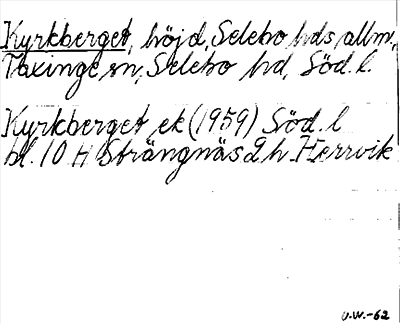 Kyrkberget, höjd, Selebo hds allm.,
Taxinge sn, Selebo hd, Söd. l.
Kyrkberget ek (1959) Söd. l
bl. 10 H Strängnäs 2 h Herrvik
U.W.-62